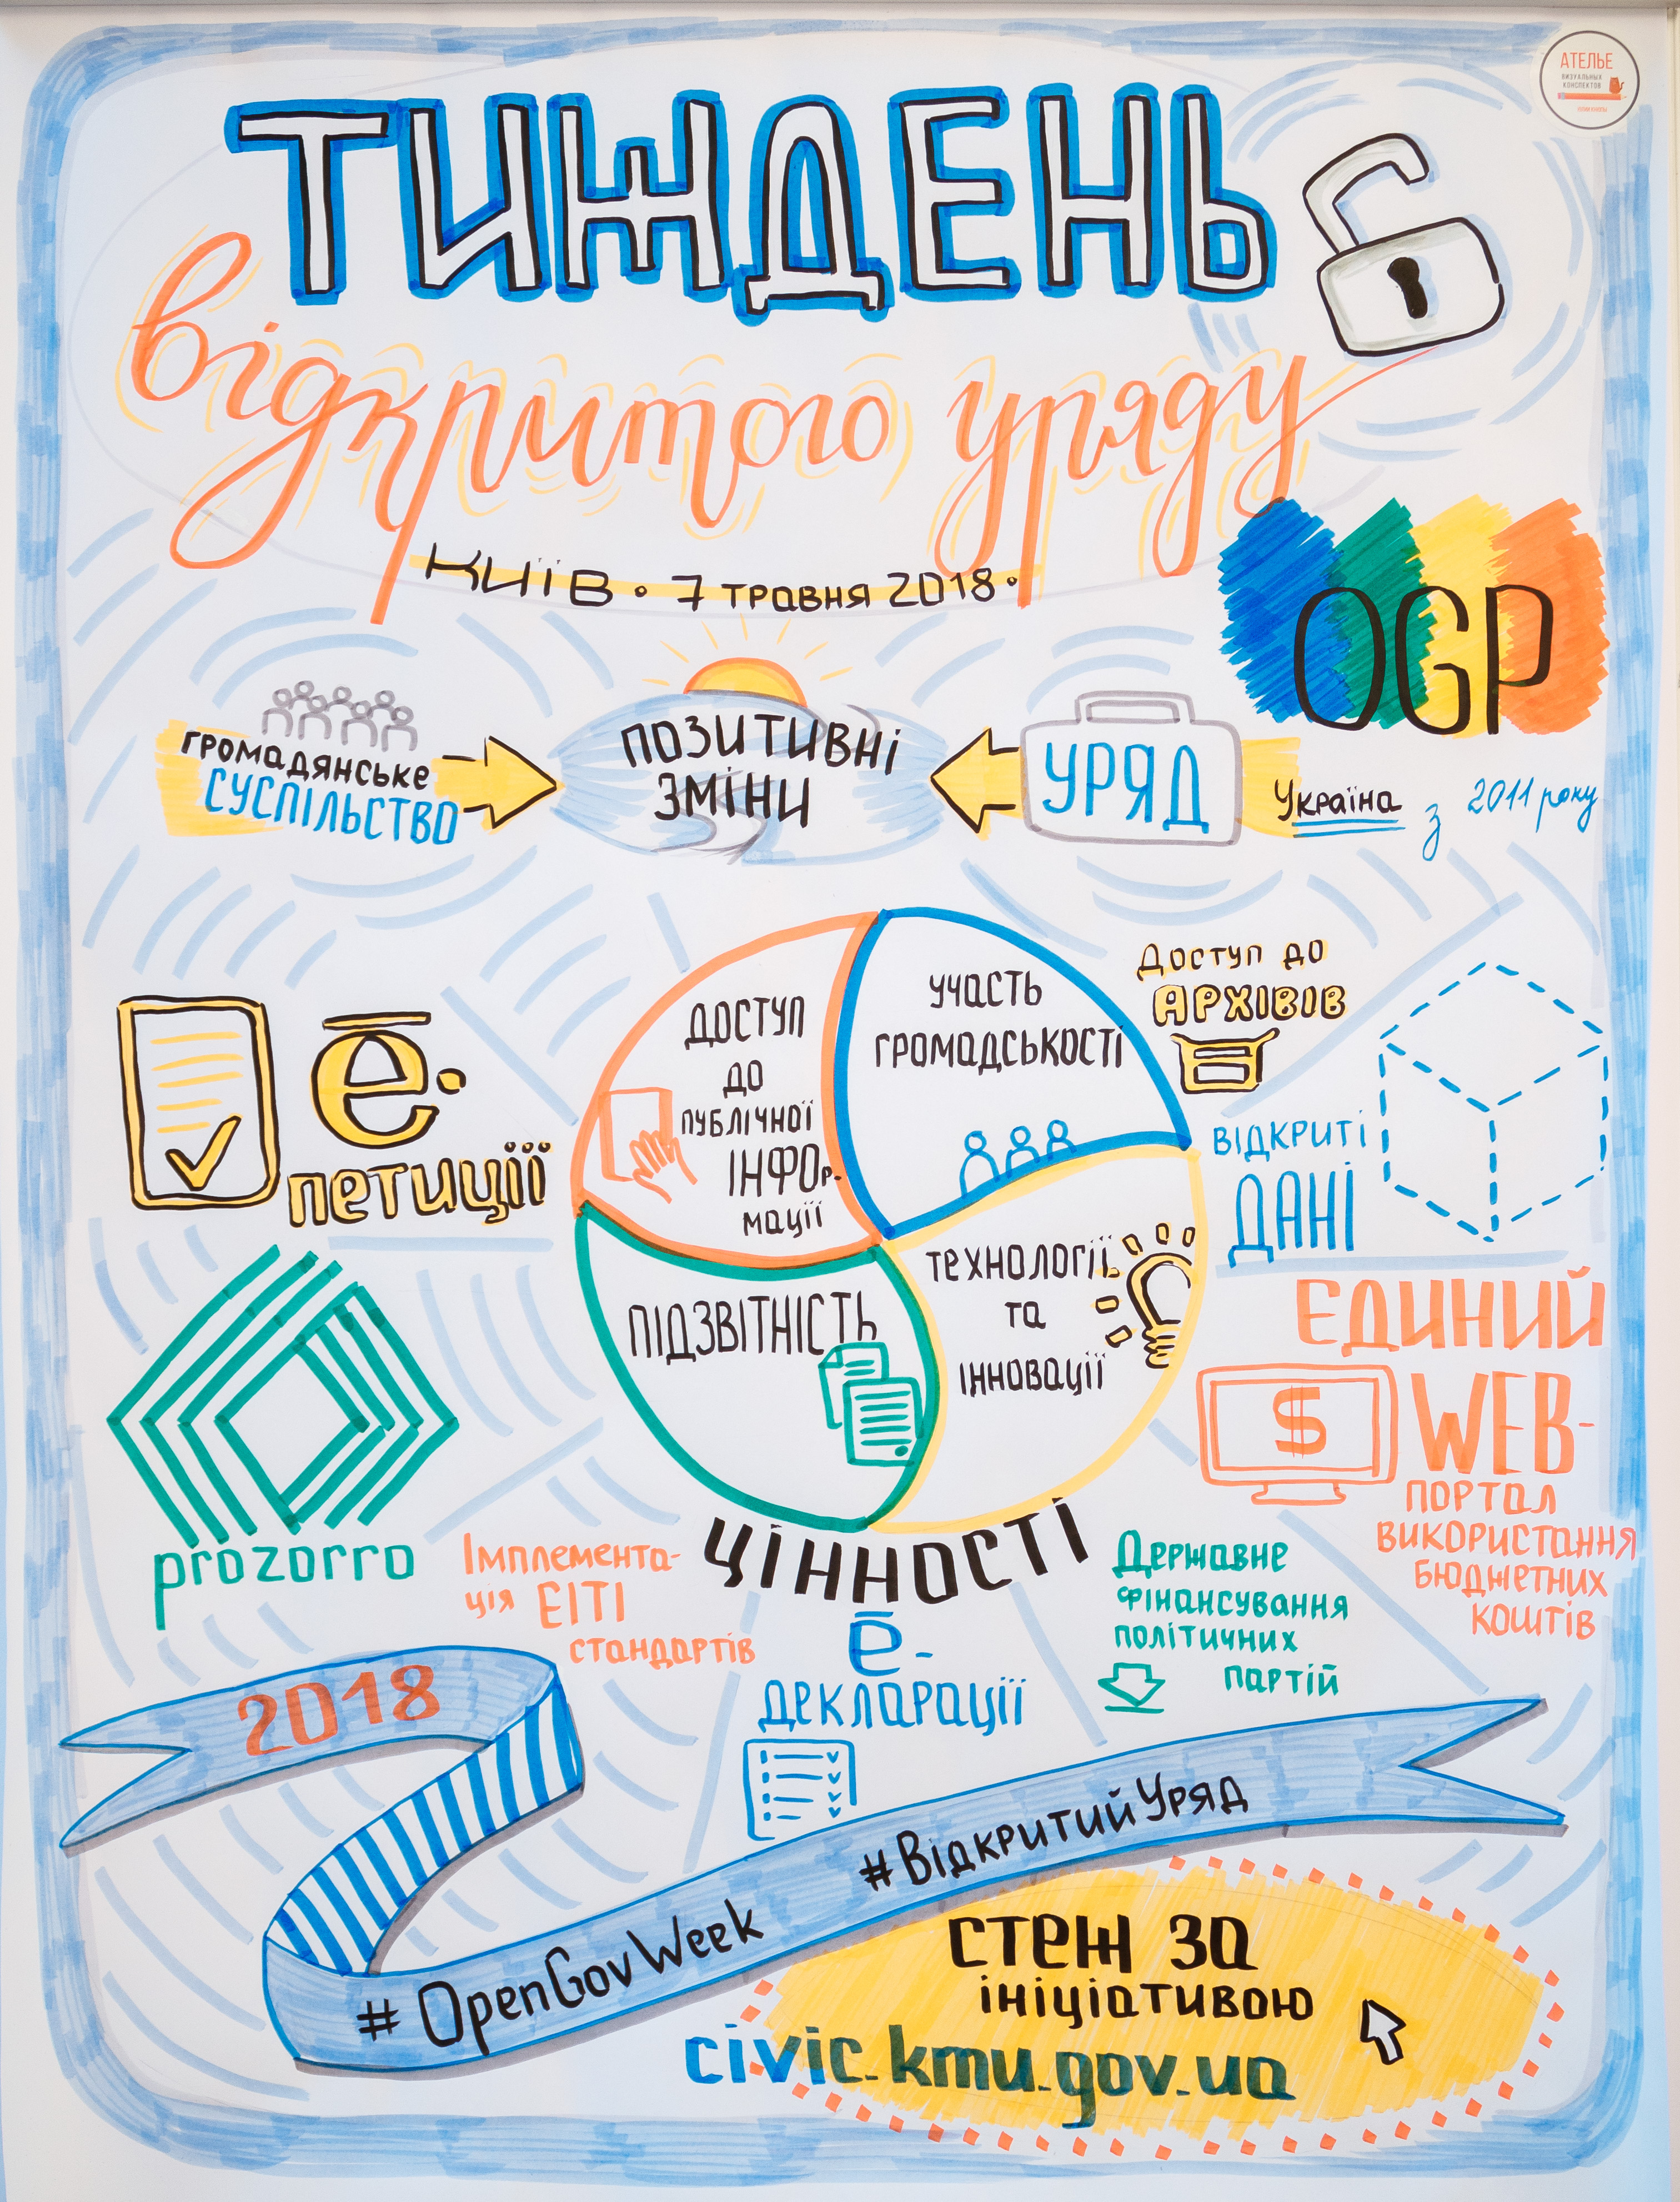 АТЕЛЬЕ
ВИЗУАЛЬНЫХ
КОНСПЕКТОВ
ТИЖДЕНЬ
відкритого уряду
Київ • 7 травня 2018 •
OGP
Україна з 2011 року
громадянське
суспільство
позитивні
зміни
УРЯД
е-
петиції
Доступ
до
публічної
інфор-
мації
участь
громадськості
Підзвітність
технології
та
інновації
ЦІННОСТІ
Доступ до
АРХІВІВ
Відкриті
ДАНІ
ЄДИНИЙ
$
WEB-
портал
використання
бюджетних
коштів
prozorro
Імплемента-
ція ЕІТІ
стандартів
е-
декларації
Державне
фінансування
політичних
партій
2018
# OpenGovWeek
#ВідкритийУряд
стеж за
ініціативою
civic.kmu.gov.ua